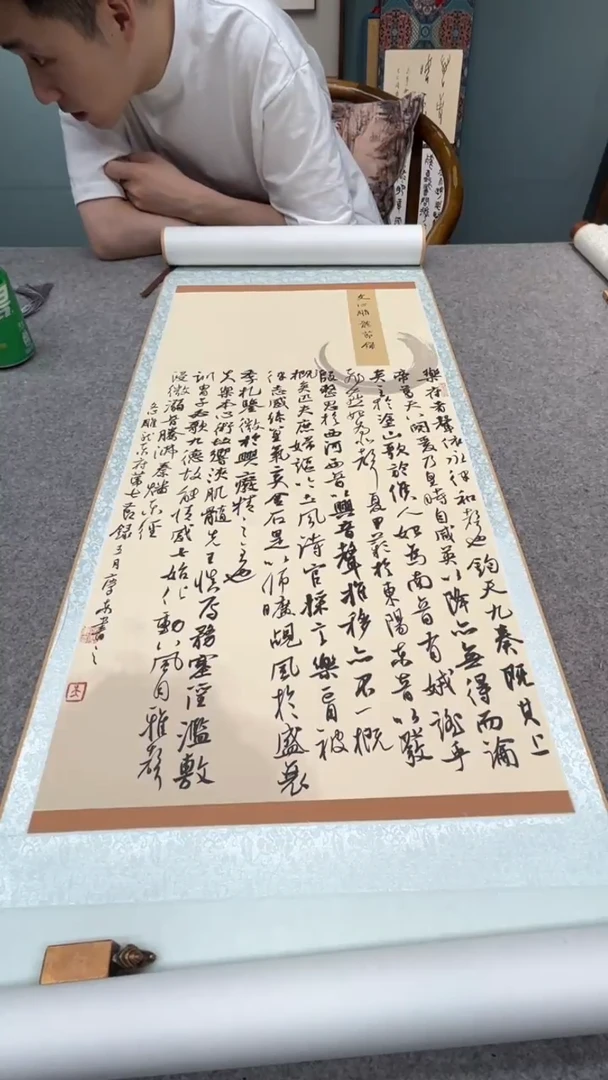 文心雕龍節錄
樂府者聲依永律和聲也鈞天九奏既其上
帝葛天八闋爰乃皇時自咸英以降亦無得而論
矣至於塗山歌於候人始為南音有娀謠乎
飛燕始為北聲夏甲歎於東陽東音以發
殷整思於西河西音以興音聲推移亦不一概
概矣匹夫庶婦謳吟土風詩官採言樂盲被
律志感絲篁氣變金石是以師曠覘風於盛衰
季札鑒微於興廢精之至也
夫樂本心術故響浹肌髓先王慎焉務塞淫濫敷
訓胄子必歌九德故能情感七始化動八風自雅聲
浸微溺音騰沸秦燔樂經
文心雕龍樂府第七節錄五月書之